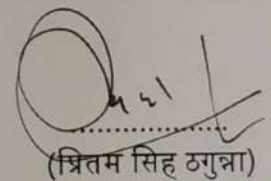 ....................
(प्रितम सिह ठगुन्ना)